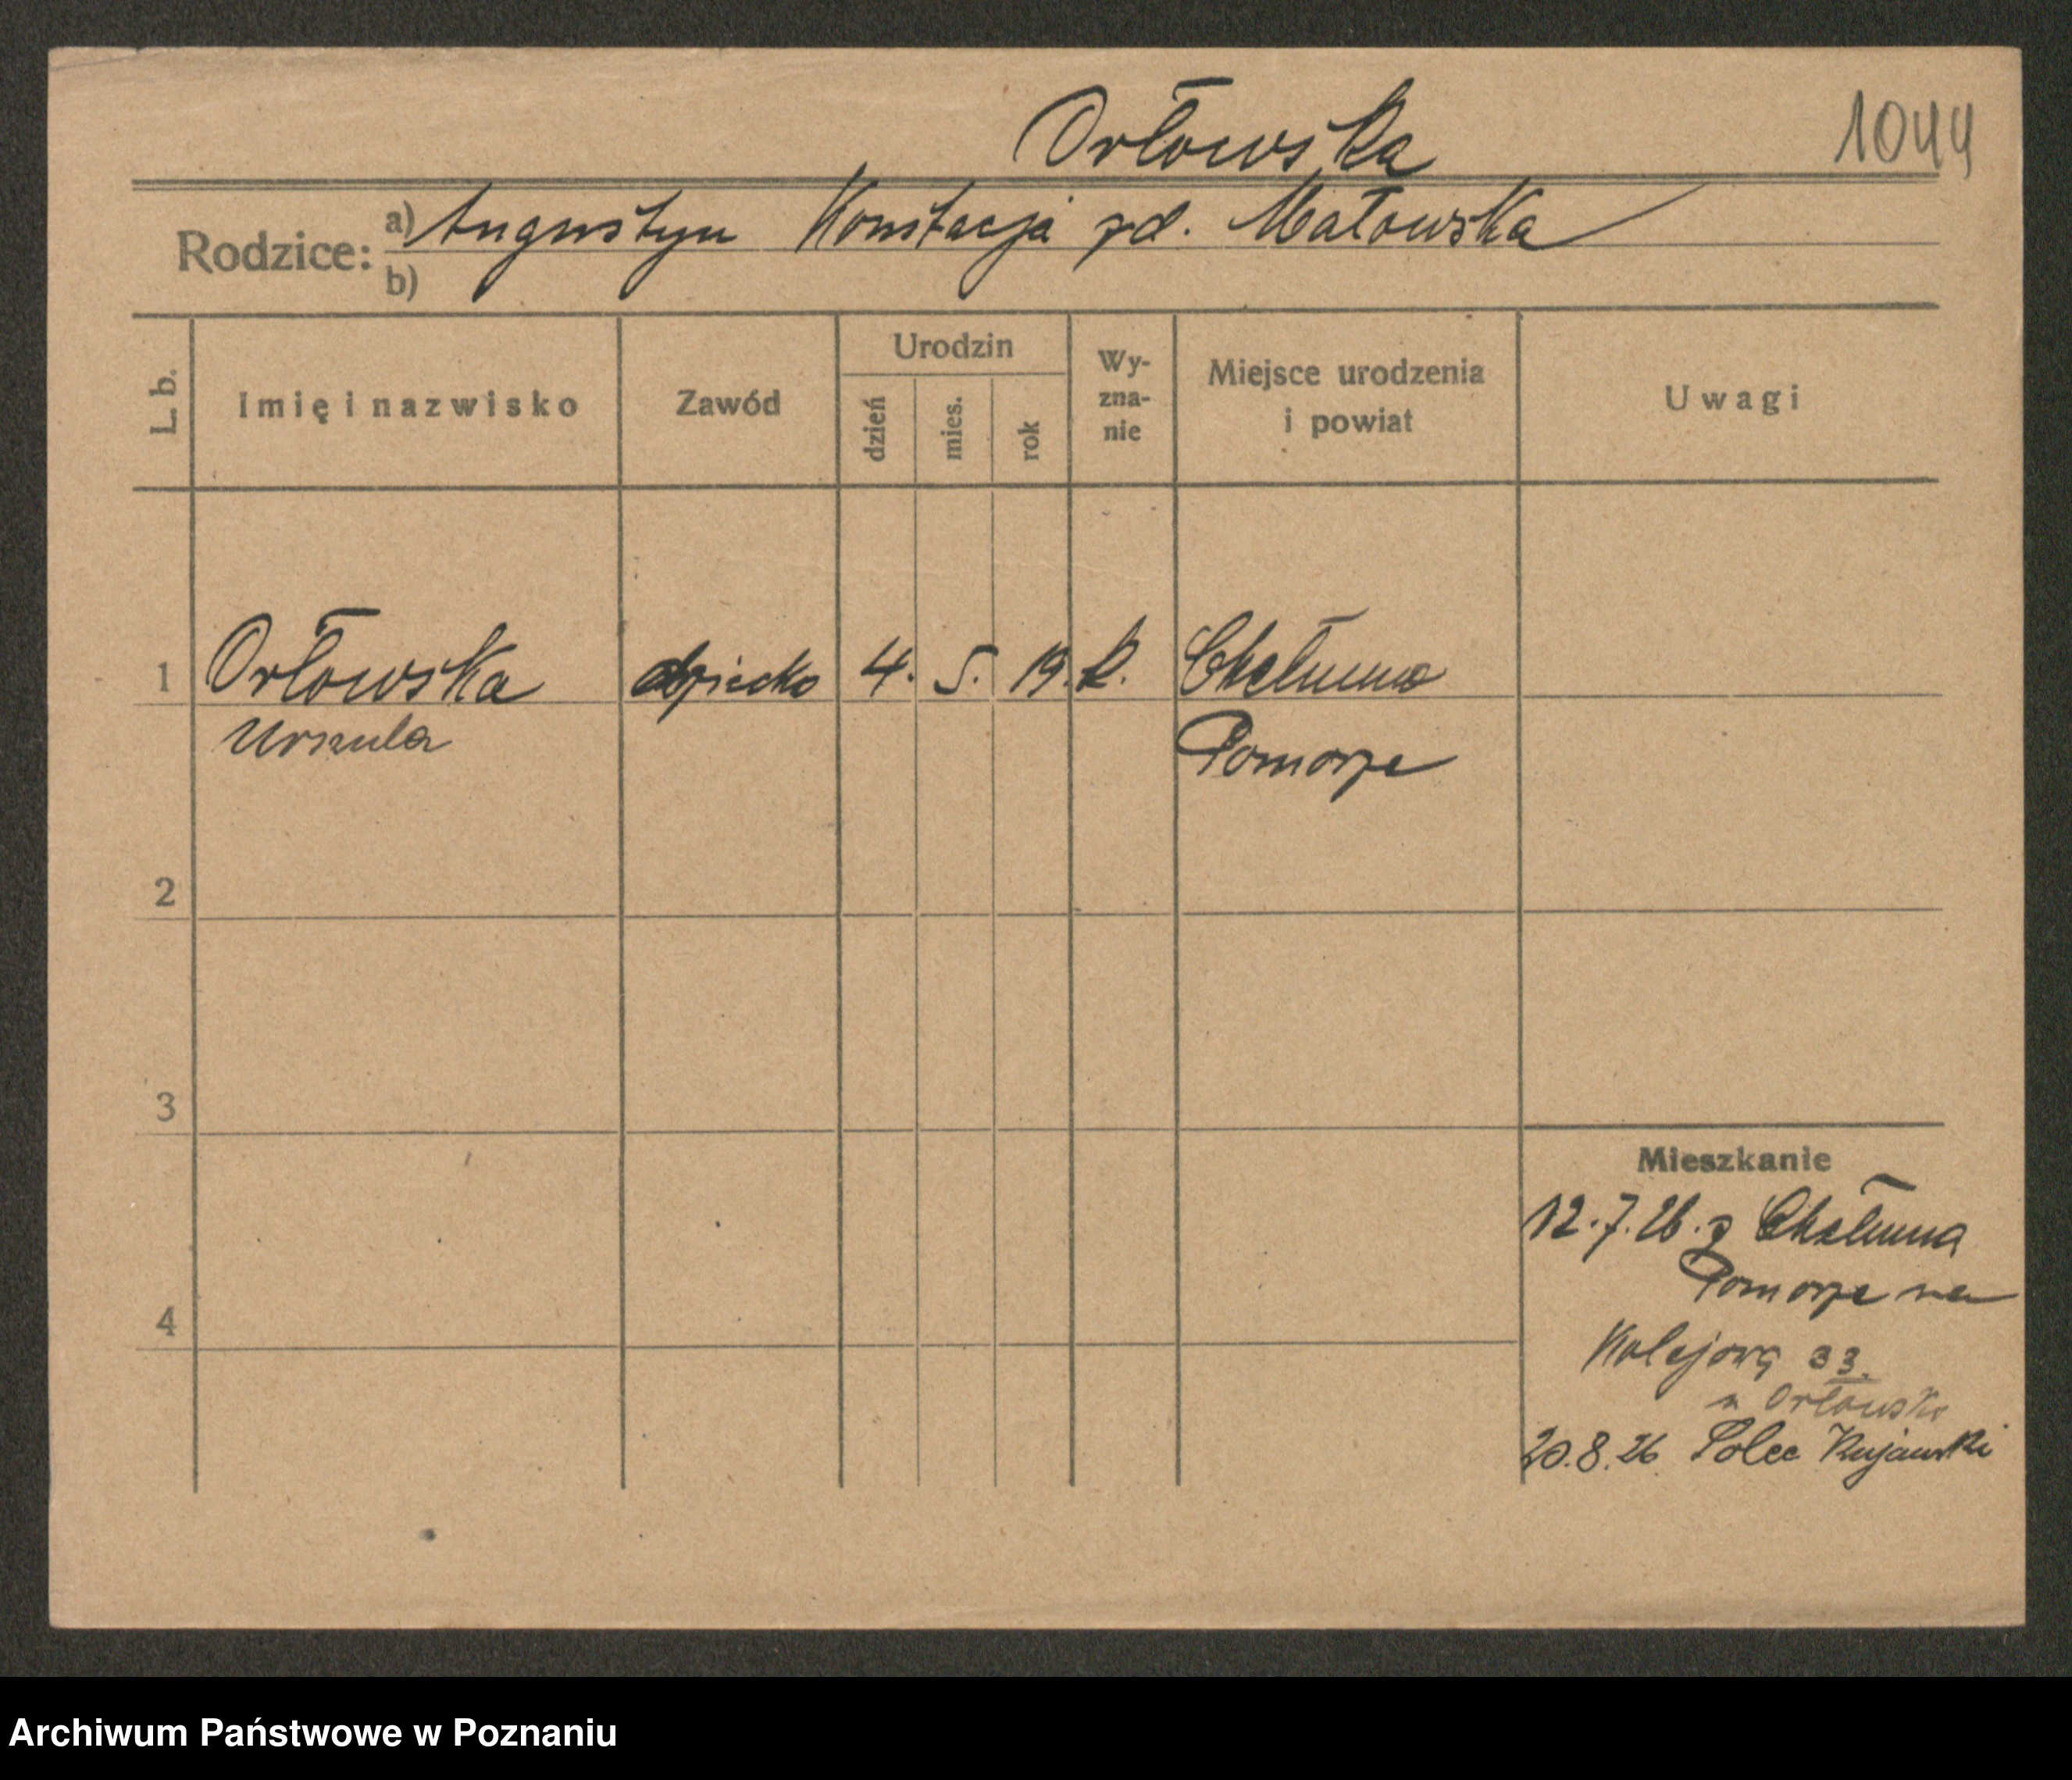 Orłowska 1044
Rodzice: a) Augustyn Konstacja zd. Małowska
b)
L. b. Imię i nazwisko Zawód Urodzin dzień mies. rok Wy-zna-nie Miejsce urodzenia i powiat Uwagi
1 Orłowska dziecko 4. 5. 19. k. Chełmno
Urszula Pomorze
2
3
Mieszkanie
12.7.26. z Chełmna
Pomorze na
4
Kolejową 33.
Orłowska
20.8.26 Solec Kujawski
Archiwum Państwowe w Poznaniu